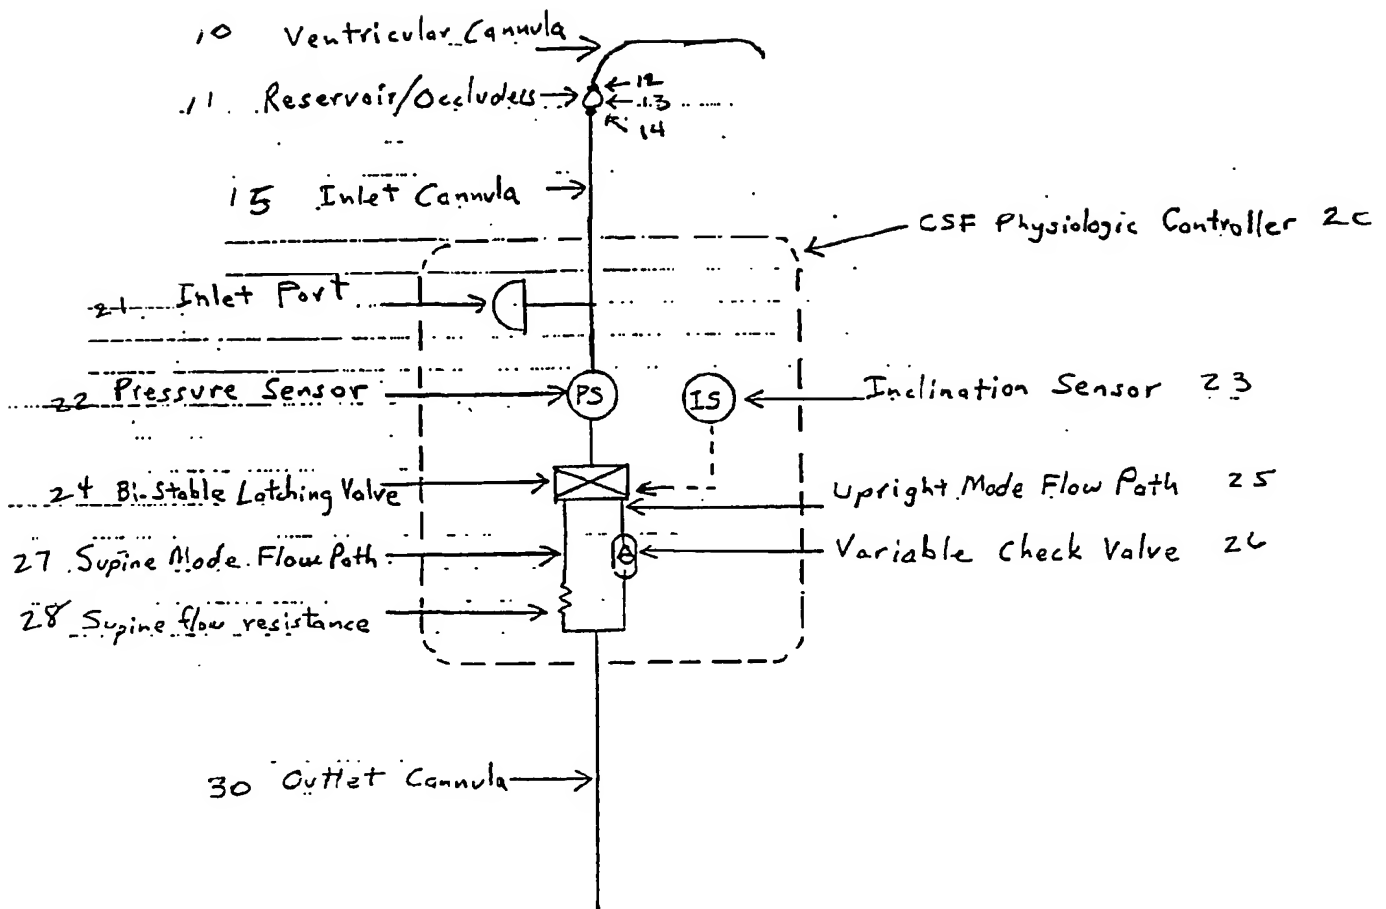 10 Ventricular Cannula
11 Reservoir/Occluders
12
13
14
15 Inlet Cannula
CSF Physiologic Controller 20
21 Inlet Port
22 Pressure Sensor
PS
IS
Inclination Sensor 23
24 Bi-Stable Latching Valve
Upright Mode Flow Path 25
27 Supine Mode Flow Path
Variable Check Valve 26
28 Supine flow resistance
30 Outlet Cannula